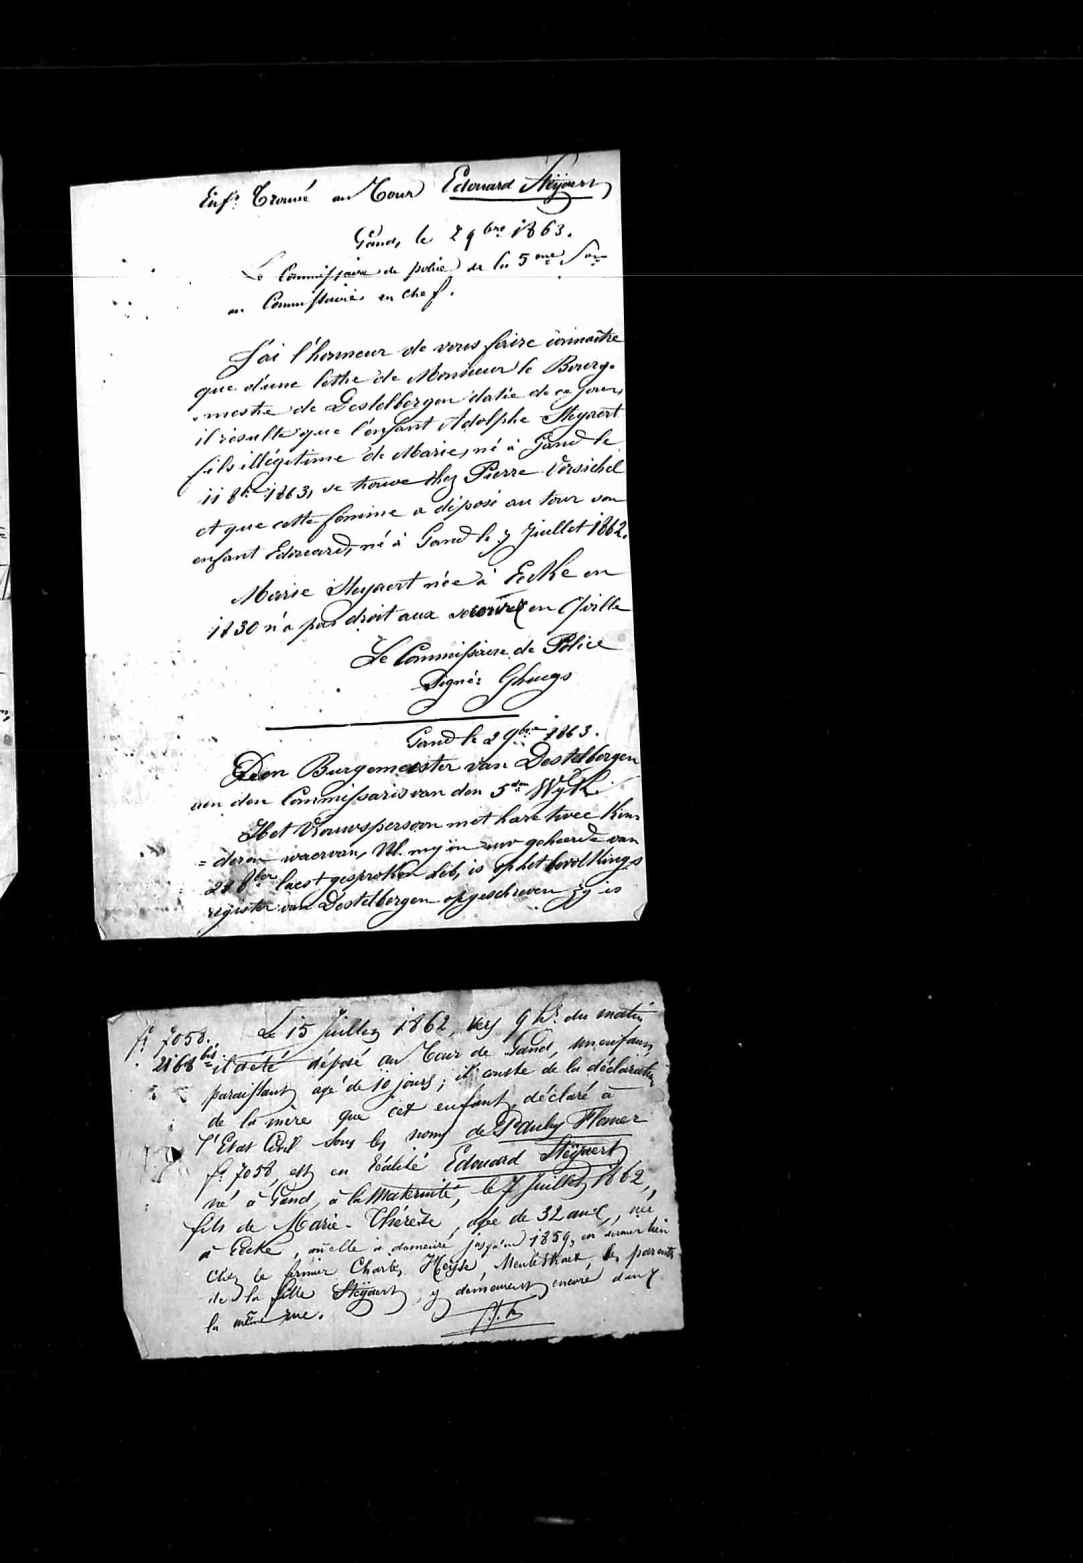 Enft Trouvé au Tour Edouard Steÿaert
Gand, le 2 9bre 1863.
Le Commissaire de police de la 5me Son
au Commissaire en chef.
J'ai l'honneur de vous faire connaître
que d'une lettre de Monsieur le Bourg-
mestre de Destelbergen datée de ce jour,
il résulte que l'enfant Adolphe Steyaert
fils illégitime de Marie, né à Gand le
11 8bre 1863, se trouve chez Pierre Versichel
et que cette femme a déposé au tour son
enfant Edouard, né à Gand le 7 Juillet 1862.
Marie Steyaert née à Eecke en
1830 n'a pas droit aux secours en ville
Le Commissaire de Police
Signé:
Gand le 2 9bre 1863.
Den Burgemeester van Destelbergen
aen den Commissaris van den 5den Wyk.
Het Vrouwspersoon met hare twee Kin-
=deren waervan, Ul. my in uw geheerde van
28 8ber laest gesproken heb, is op het bevolkings
register van Destelbergen opgeschreven zy is
fo 7058. Le 15 Juillet 1862, vers 9 hs du matin
2168 bis il a été déposé au Tour de Gand, un enfant,
paraissant agé de 10 jours; il conste de la déclaration
de la mère que cet enfant, déclaré à
l'Etat Civil sous les noms de Pauly Flamer
fo 7058, est en réalité Edouard Steÿaert
né à Gand, à la Maternité, le 7 Juillet 1862,
fils de Marie-Thérèse, agée de 32 ans, née
à Eecke, où elle a demeuré jusqu'en 1859, en dernier lieu
chez le fermier Charles Heyse, Meulestraet, les parents
de la fille Steÿaert, y demeurent encore dans
la même rue.